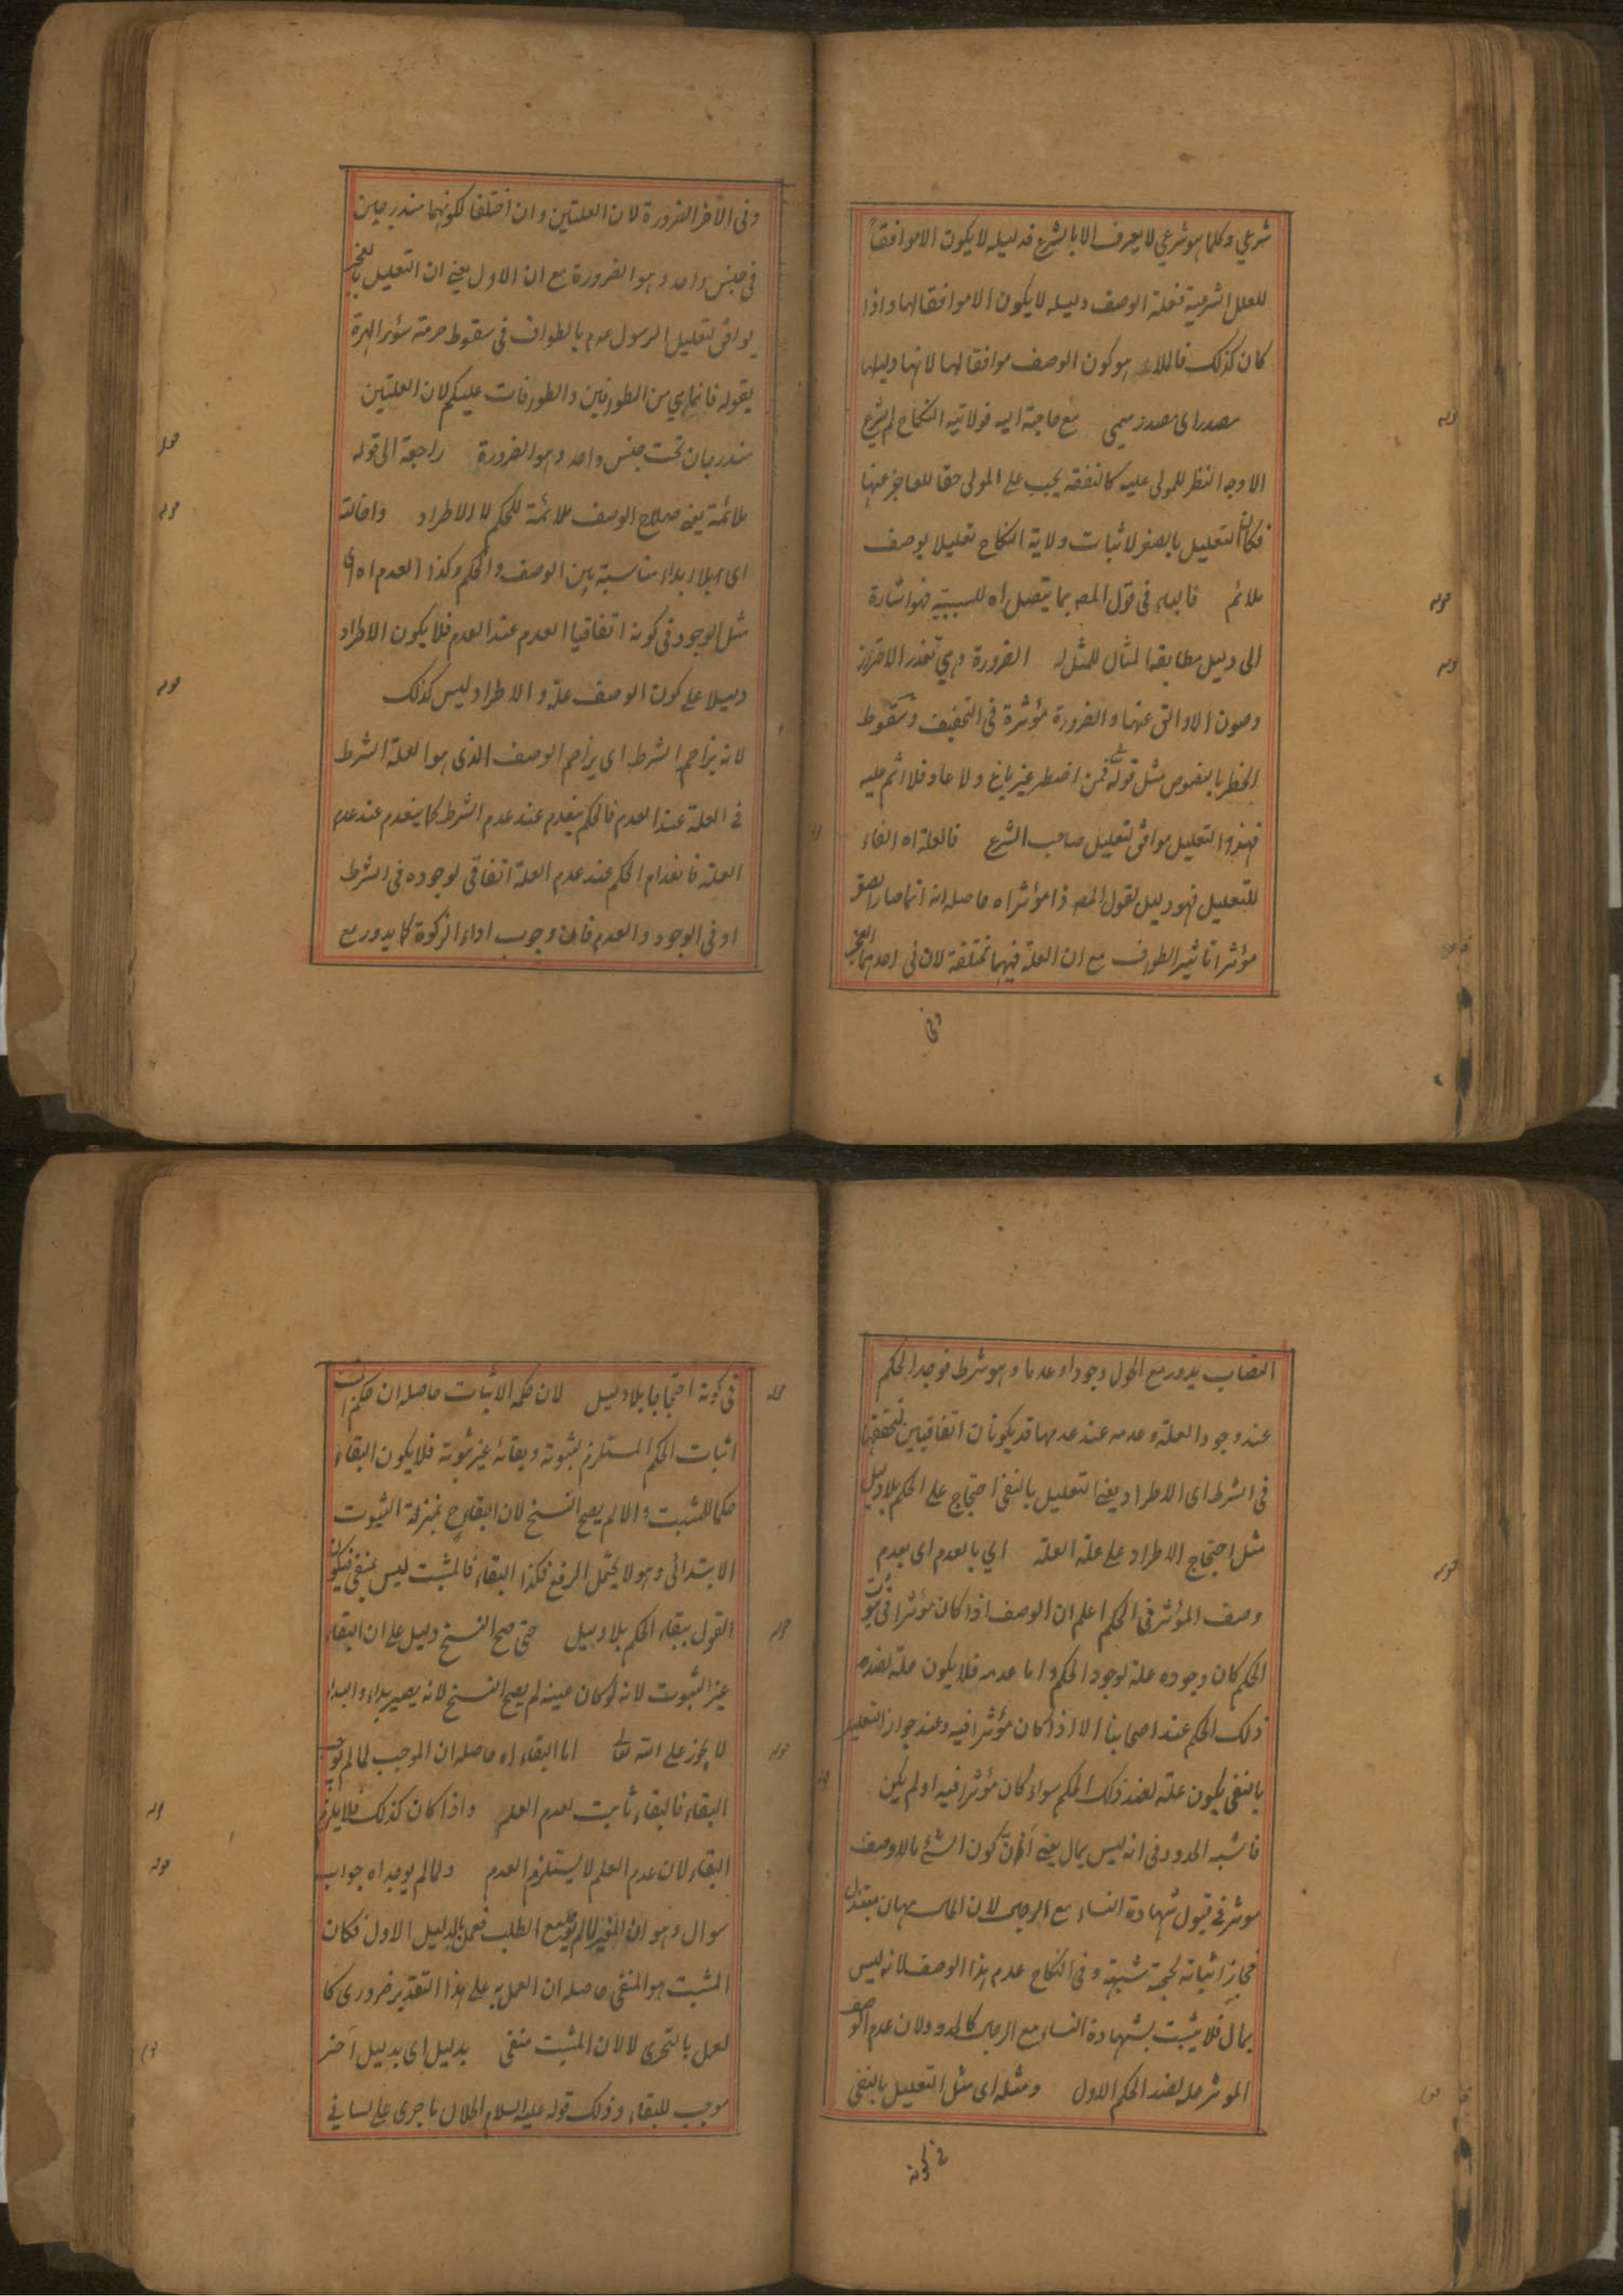 شرعي وكلما هو شرعي لا يعرف الا بالشرع فدليله لا يكون الا موافقاً
للعلل الشرعية فعلة الوصف دليله لا يكون الا موافقا لها واذا
كان كذلك هو كون الوصف موافقا لها لانها دليلها
مصدر اى مصدر ميمي مع حاجة اليه فولاية النكاح لم يشرع
الا وجه النظر للمولى عليه كالنفقة يجب على المولى حقا للعاجز عنها
فكان التعليل بالصغر لاثبات ولاية النكاح تعليلا بوصف
ملائم فالباء فى قول المصـ بما يتصل اه للسببية فهو اشارة
الى دليل مطابقة المثال للمثل له الضرورة وهي تعذر الاحتراز
وصون الاوانى عنها والضرورة مؤثرة فى التخفيف وسقوط
الخطر بالنصوص مثل قوله فمن اضطر غير باغ ولا عاد فلا اثم عليه
فهذا التعليل موافق لتعليل صاحب الشرع فالعلة اه الفاء
للتعليل فهو دليل لقول المصـ ذا مؤثرا اه حاصله انه انما صار الصغر
مؤثرا تاثير الطواف مع ان العلة فيهما مختلفة لان فى احدهما العجز
وفى
وفى الآخر الضرورة لان العلتين وان اختلفا لكونهما مندرجين
فى جنس واحد وهو الضرورة مع ان الاول يعنى ان التعليل بالعجز
يوافق لتعليل الرسول عم بالطواف فى سقوط حرمة سؤر الهرة
بقوله فانما هي من الطوافين والطوافات عليكم لان العلتين
مندرجان تحت جنس واحد وهو الضرورة راجعة الى قوله
ملائمة يعنى صلاح الوصف ملائمة للحكم لا الاطراد واخالة
اى بلا ابداء مناسبة بين الوصف والحكم وكذا العدم اه اى
مثل الوجود فى كونه اتفاقيا العدم عند العدم فلا يكون الاطراد
دليلا على كون الوصف علة والاطراد ليس كذلك
لانه يزاحم الشرط اى يزاحم الوصف الذى هو العلة الشرط
فى العلة عند العدم فالحكم ينعدم عند عدم الشرط كما ينعدم عند عدم
العلة فانعدام الحكم عند عدم العلة اتفاقى لوجوده فى الشرط
او فى الوجود والعدم فان وجوب اداء الزكوة كما يدور مع
النصاب يدور مع الحول وجودا وعدما وهو شرط فوجد الحكم
عند وجود العلة وعدمه عند عدمها قد يكونان اتفاقيين لتحققهما
فى الشرط اى الاطراد يعنى التعليل بالنفى احتجاج على الحكم بلا دليل
مثل احتجاج الاطراد على علة العلة اي بالعدم اى بعدم
وصف المؤثر فى الحكم اعلم ان الوصف اذا كان مؤثرا فى ثبوت
الحكم كان وجوده علة لوجود الحكم واما عدمه فلا يكون علة لضد
ذلك الحكم عند اصحابنا الا اذا كان مؤثرا فيه وعند جواز التعليل
بالنفى يكون علة لضد ذلك الحكم سواء كان مؤثرا فيه او لم يكن
فاشبه الحدود فى انه ليس بمال يعنى ان كون الشئ مالا وصف
موثر فى قبول شهادة النساء مع الرجال لان المال
فجاز اثباته بحجة شبهة وفى النكاح عدم هذا الوصف لانه ليس
بمال فلا يثبت بشهادة النساء مع الرجال كالحدود ولان عدم الوصف
الموثر علة لضد الحكم الاول ومثله اى مثل التعليل بالنفى
فى كونه
فى كونه احتجاجا بلا دليل لان حكمه الاثبات حاصله ان حكم
اثبات الحكم المستلزم لثبوته وبقائه غير ثبوته فلا يكون البقاء
حكما للمثبت والا لم يصح النسخ لان البقاء ح بمنزلة الثبوت
الابتدائى وهو لا يحتمل الرفع فكذا البقاء فالمثبت ليس بمنفى فيكون
القول ببقاء الحكم بلا دليل حتى صح النسخ دليل على ان البقاء
غير الثبوت لانه لو كان عينه لم يصح النسخ لانه يصير بداء والبداء
لا يجوز على الله تعالى اما البقاء اه حاصله ان الموجب لما لم يوجب
البقاء فالبقاء ثابت لعدم العلم واذا كان كذلك فلا يلزم
البقاء لان عدم العلم لا يستلزم العدم ولما لم يوجد اه جواب
سوال وهو ان المغير لما لم مع الطلب بالدليل الاول فكان
المثبت هو المنفى حاصله ان العمل به على هذا التقدير ضرورى كما
لعمل بالتحرى لا لان المثبت منفى بدليل اى بدليل آخر
موجب للبقاء وذلك قوله عليه السلام الحلال ما جرى على لسانى